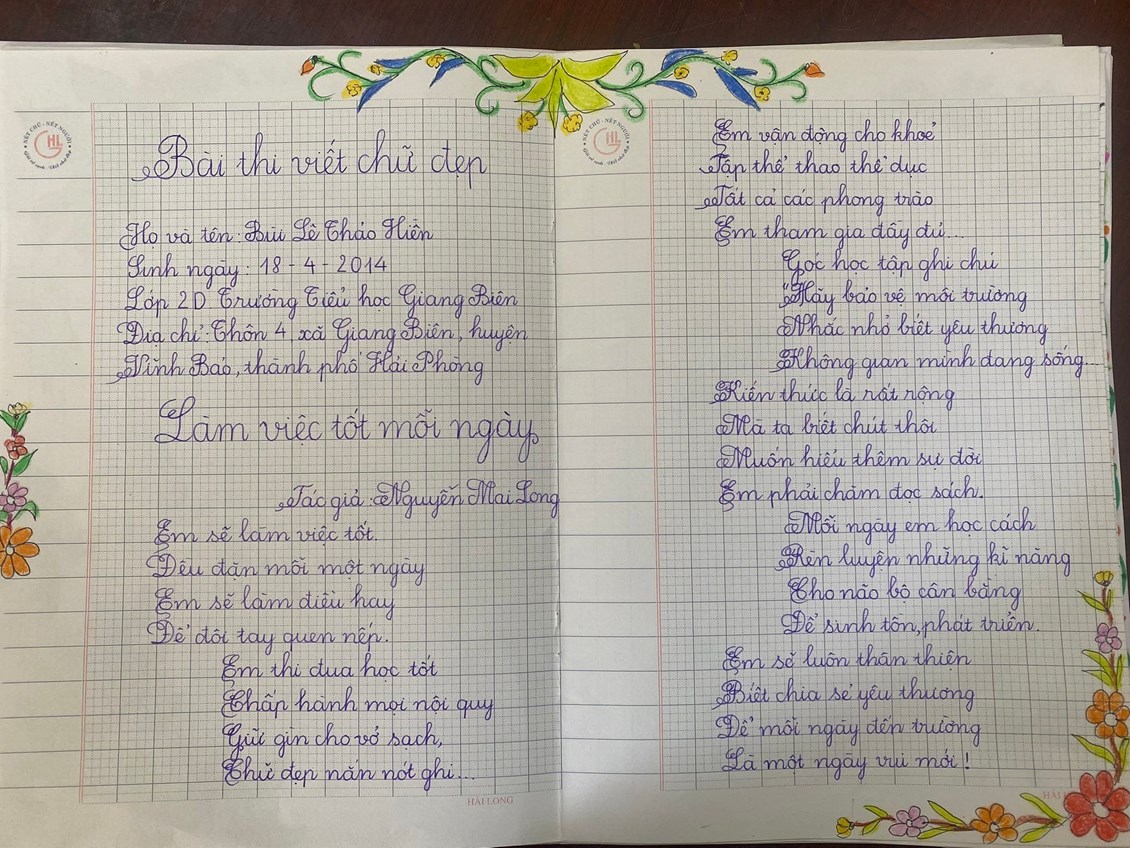 NÉT CHỮ - NẾT NGƯỜI
HL
Bài thi viết chữ đẹp
Họ và tên: Bùi Lê Thảo Hiền
Sinh ngày: 18 - 4 - 2014
Lớp 2D Trường Tiểu học Giang Biên
Địa chỉ: Thôn 4, xã Giang Biên, huyện
Vĩnh Bảo, thành phố Hải Phòng
Làm việc tốt mỗi ngày
Tác giả: Nguyễn Mai Long
Em sẽ làm việc tốt.
Đều đặn mỗi một ngày
Em sẽ làm điều hay
Để đôi tay quen nếp.
Em thi đua học tốt
Chấp hành mọi nội quy
Giữ gìn cho vở sạch,
Chữ đẹp nắn nót ghi...
HẢI LONG
NÉT CHỮ - NẾT NGƯỜI
HL
Em vận động cho khoẻ
Tập thể thao thể dục
Tất cả các phong trào
Em tham gia đầy đủ...
Góc học tập ghi chú
"Hãy bảo vệ môi trường
Nhắc nhở biết yêu thương
Không gian mình đang sống...
Kiến thức là rất rộng
Mà ta biết chút thôi
Muốn hiểu thêm sự đời
Em phải chăm đọc sách.
Mỗi ngày em học cách
Rèn luyện những kĩ năng
Cho não bộ cân bằng
Để sinh tồn, phát triển.
Em sẽ luôn thân thiện
Biết chia sẻ yêu thương
Để mỗi ngày đến trường
Là một ngày vui mới!